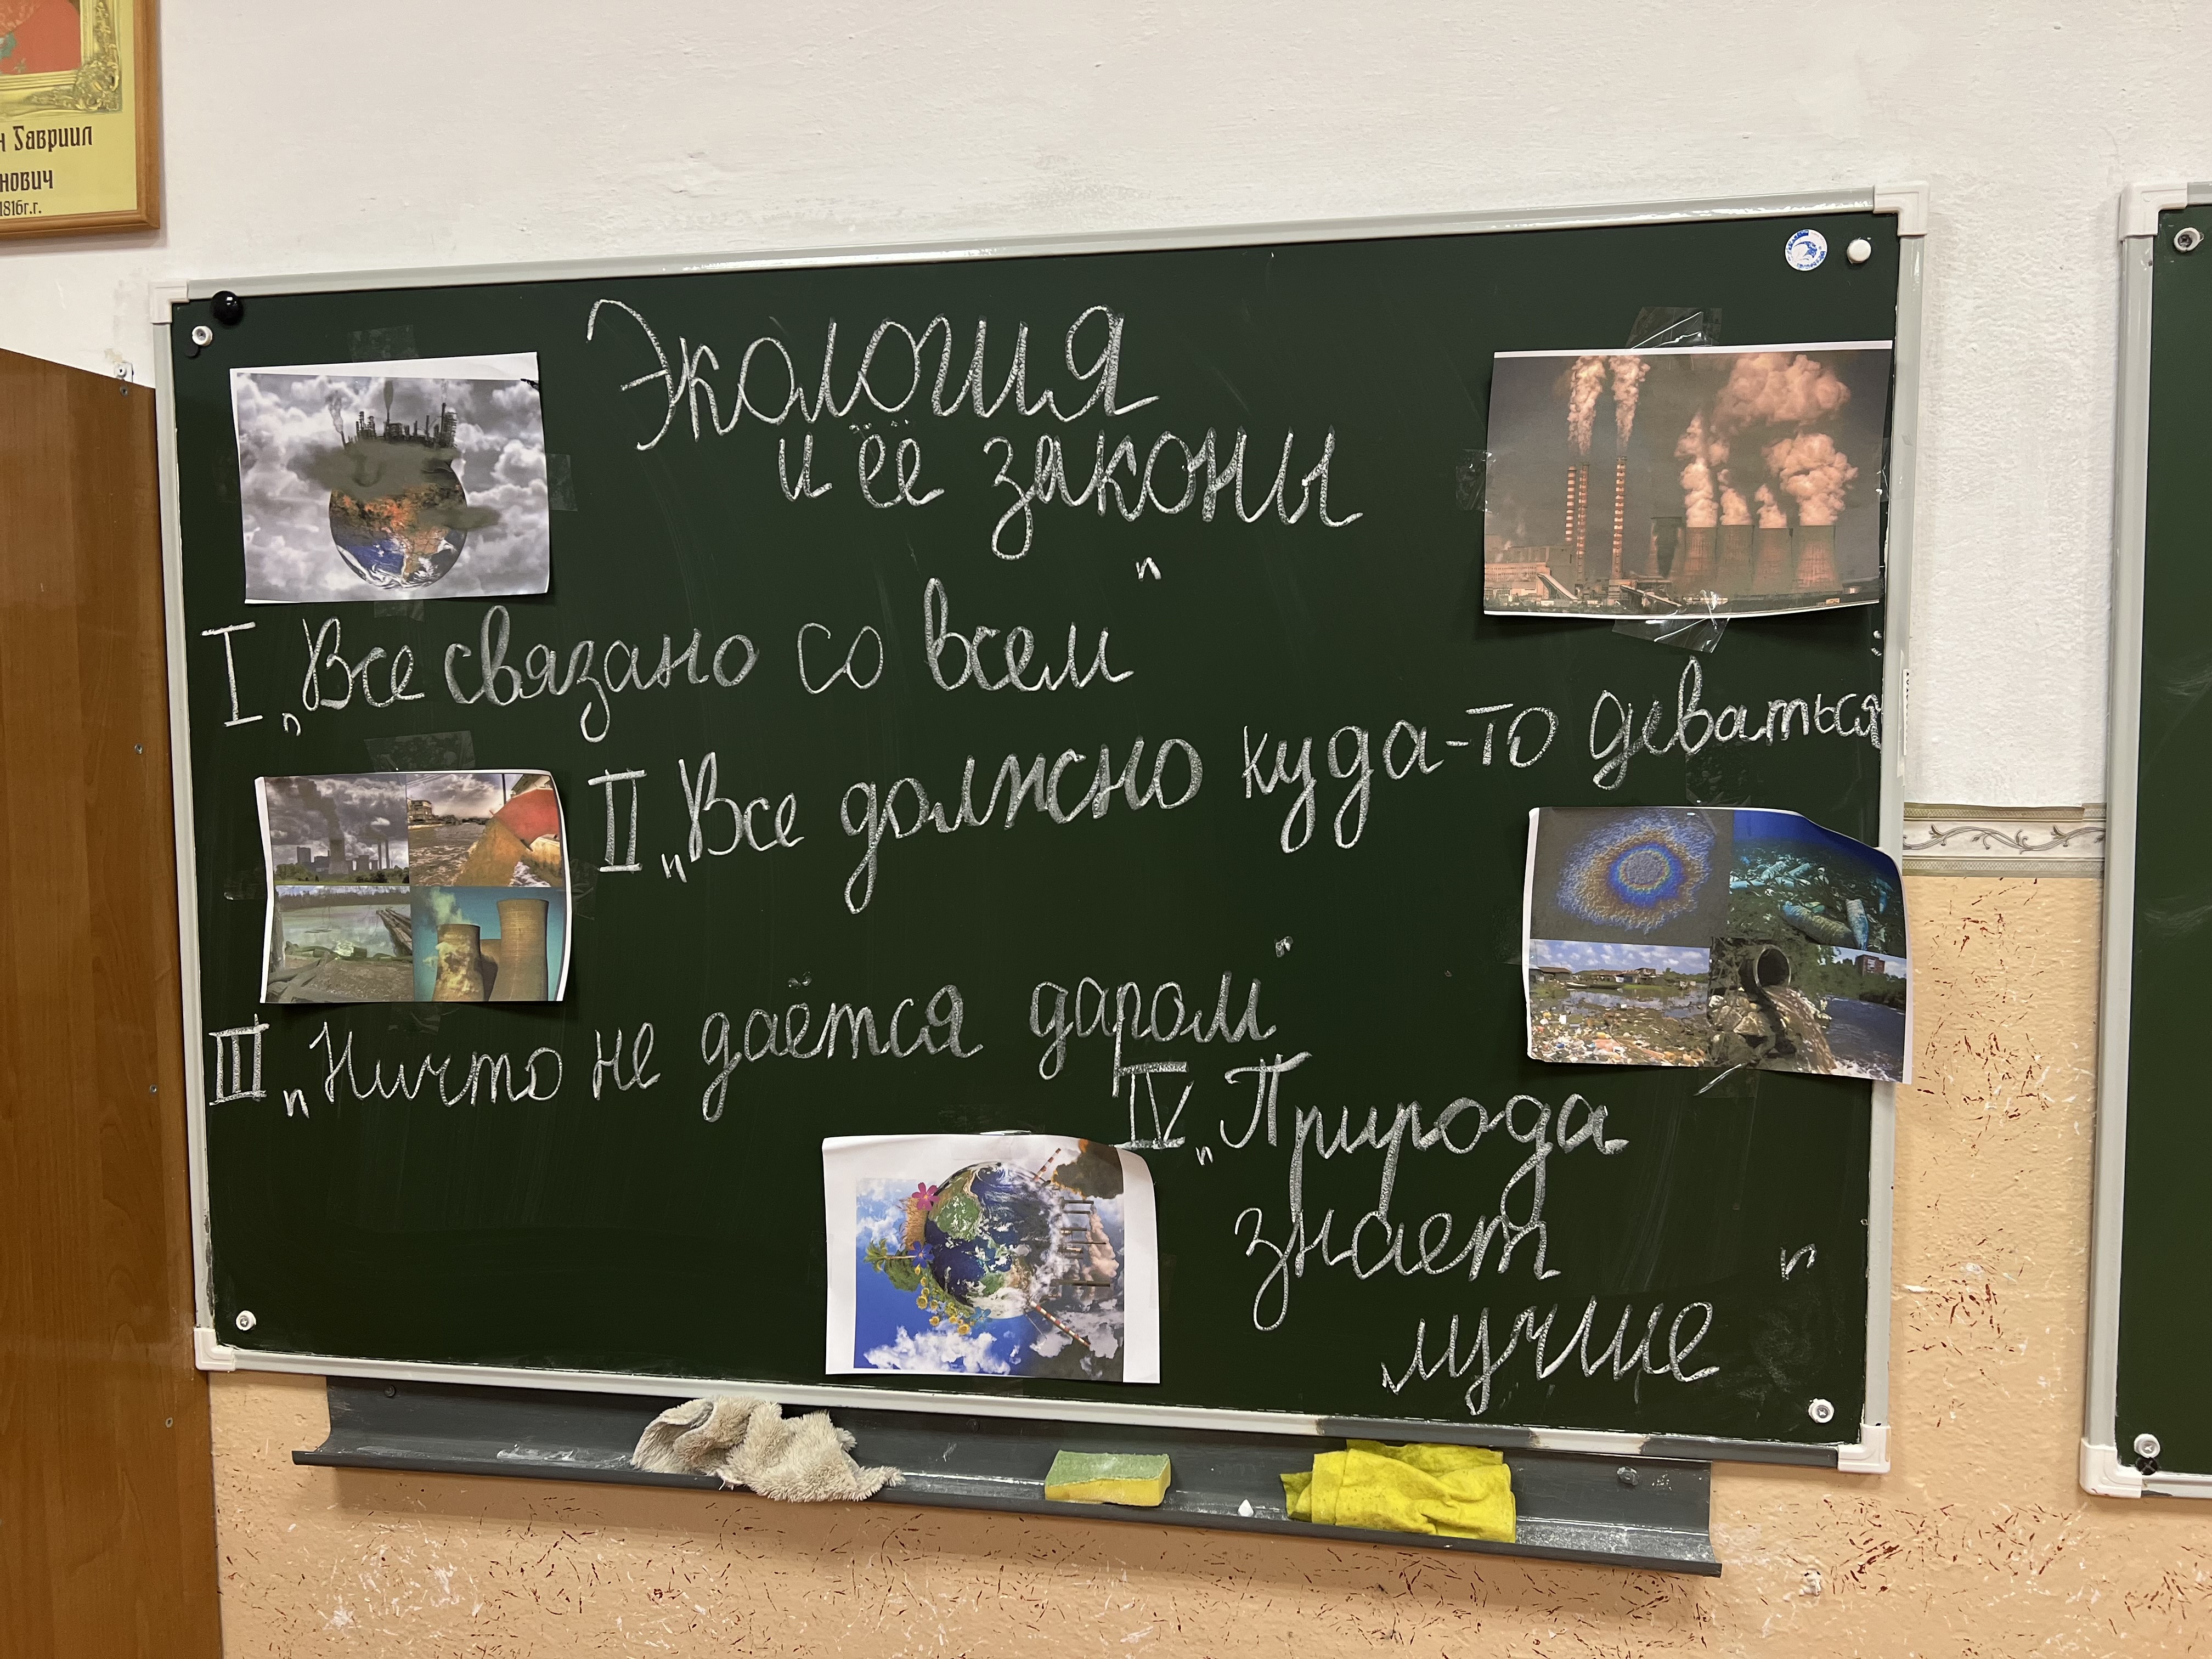 н Гавриил
нович
1816г.г.
Экология
и её законы
I „Все связано со всем"
II „Все должно куда-то деваться
III „Ничто не даётся даром"
IV „Природа
знает
лучше"